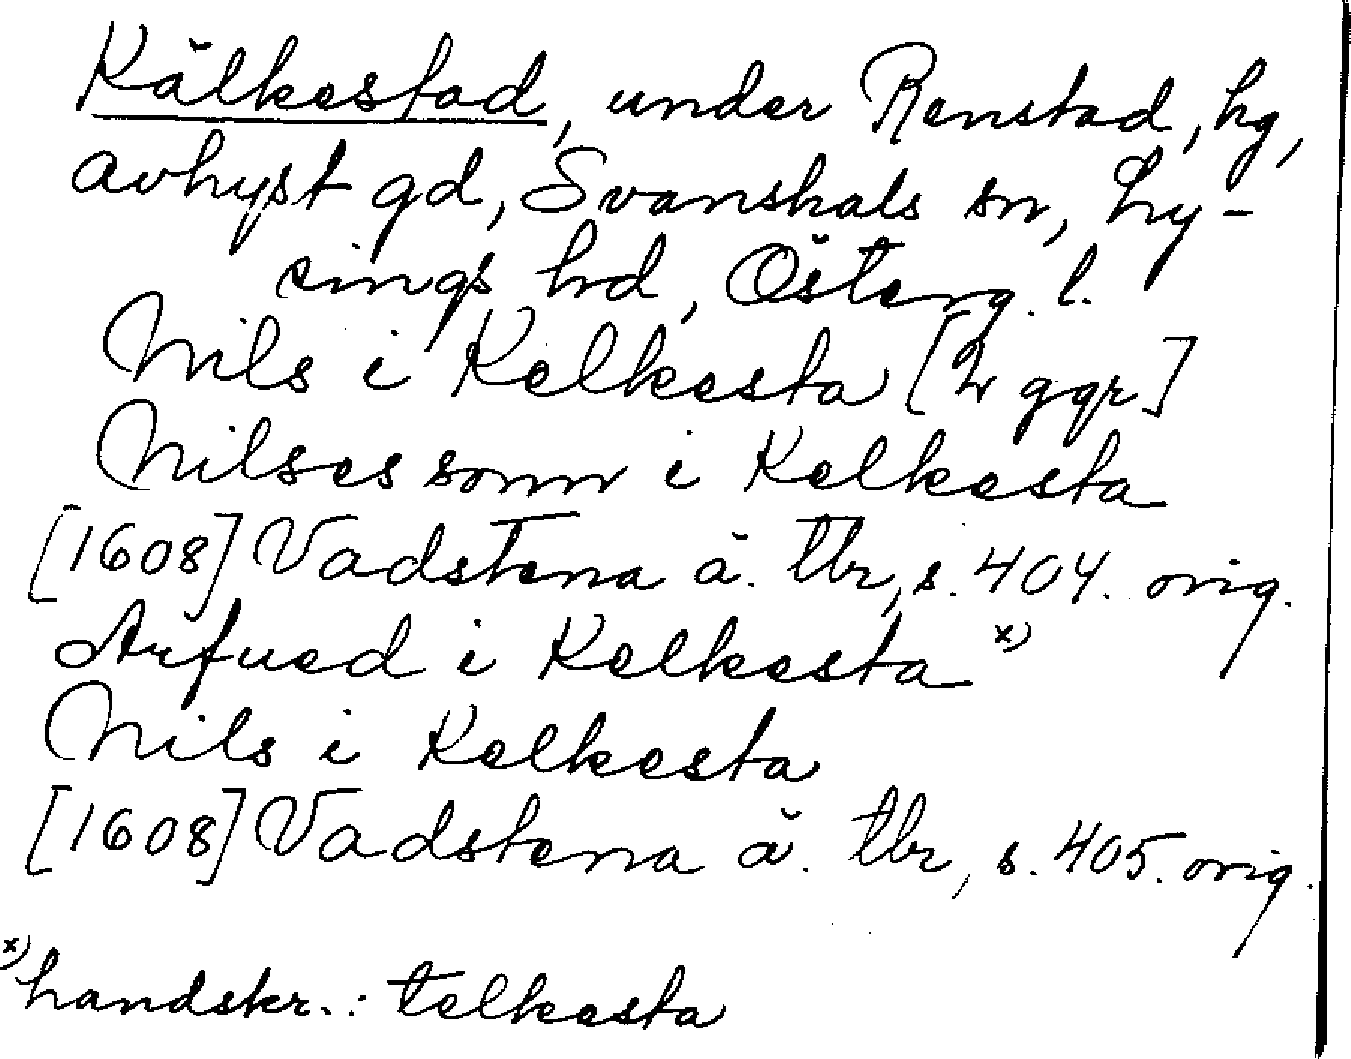 Kälkestad, under Renstad, hg,
avhyst gd, Svanshals sn, Ly-
sings hd, Österg. l.
Nils i Kelkesta [2 ggr]
Nilses sonn i Kelkesta
[1608] Vadstena ä. tbr, s. 404. orig.
Arfued i Kelkesta x)
Nils i Kelkesta
[1608] Vadstena ä. tbr, s. 405. orig.
x) handskr.: telkesta